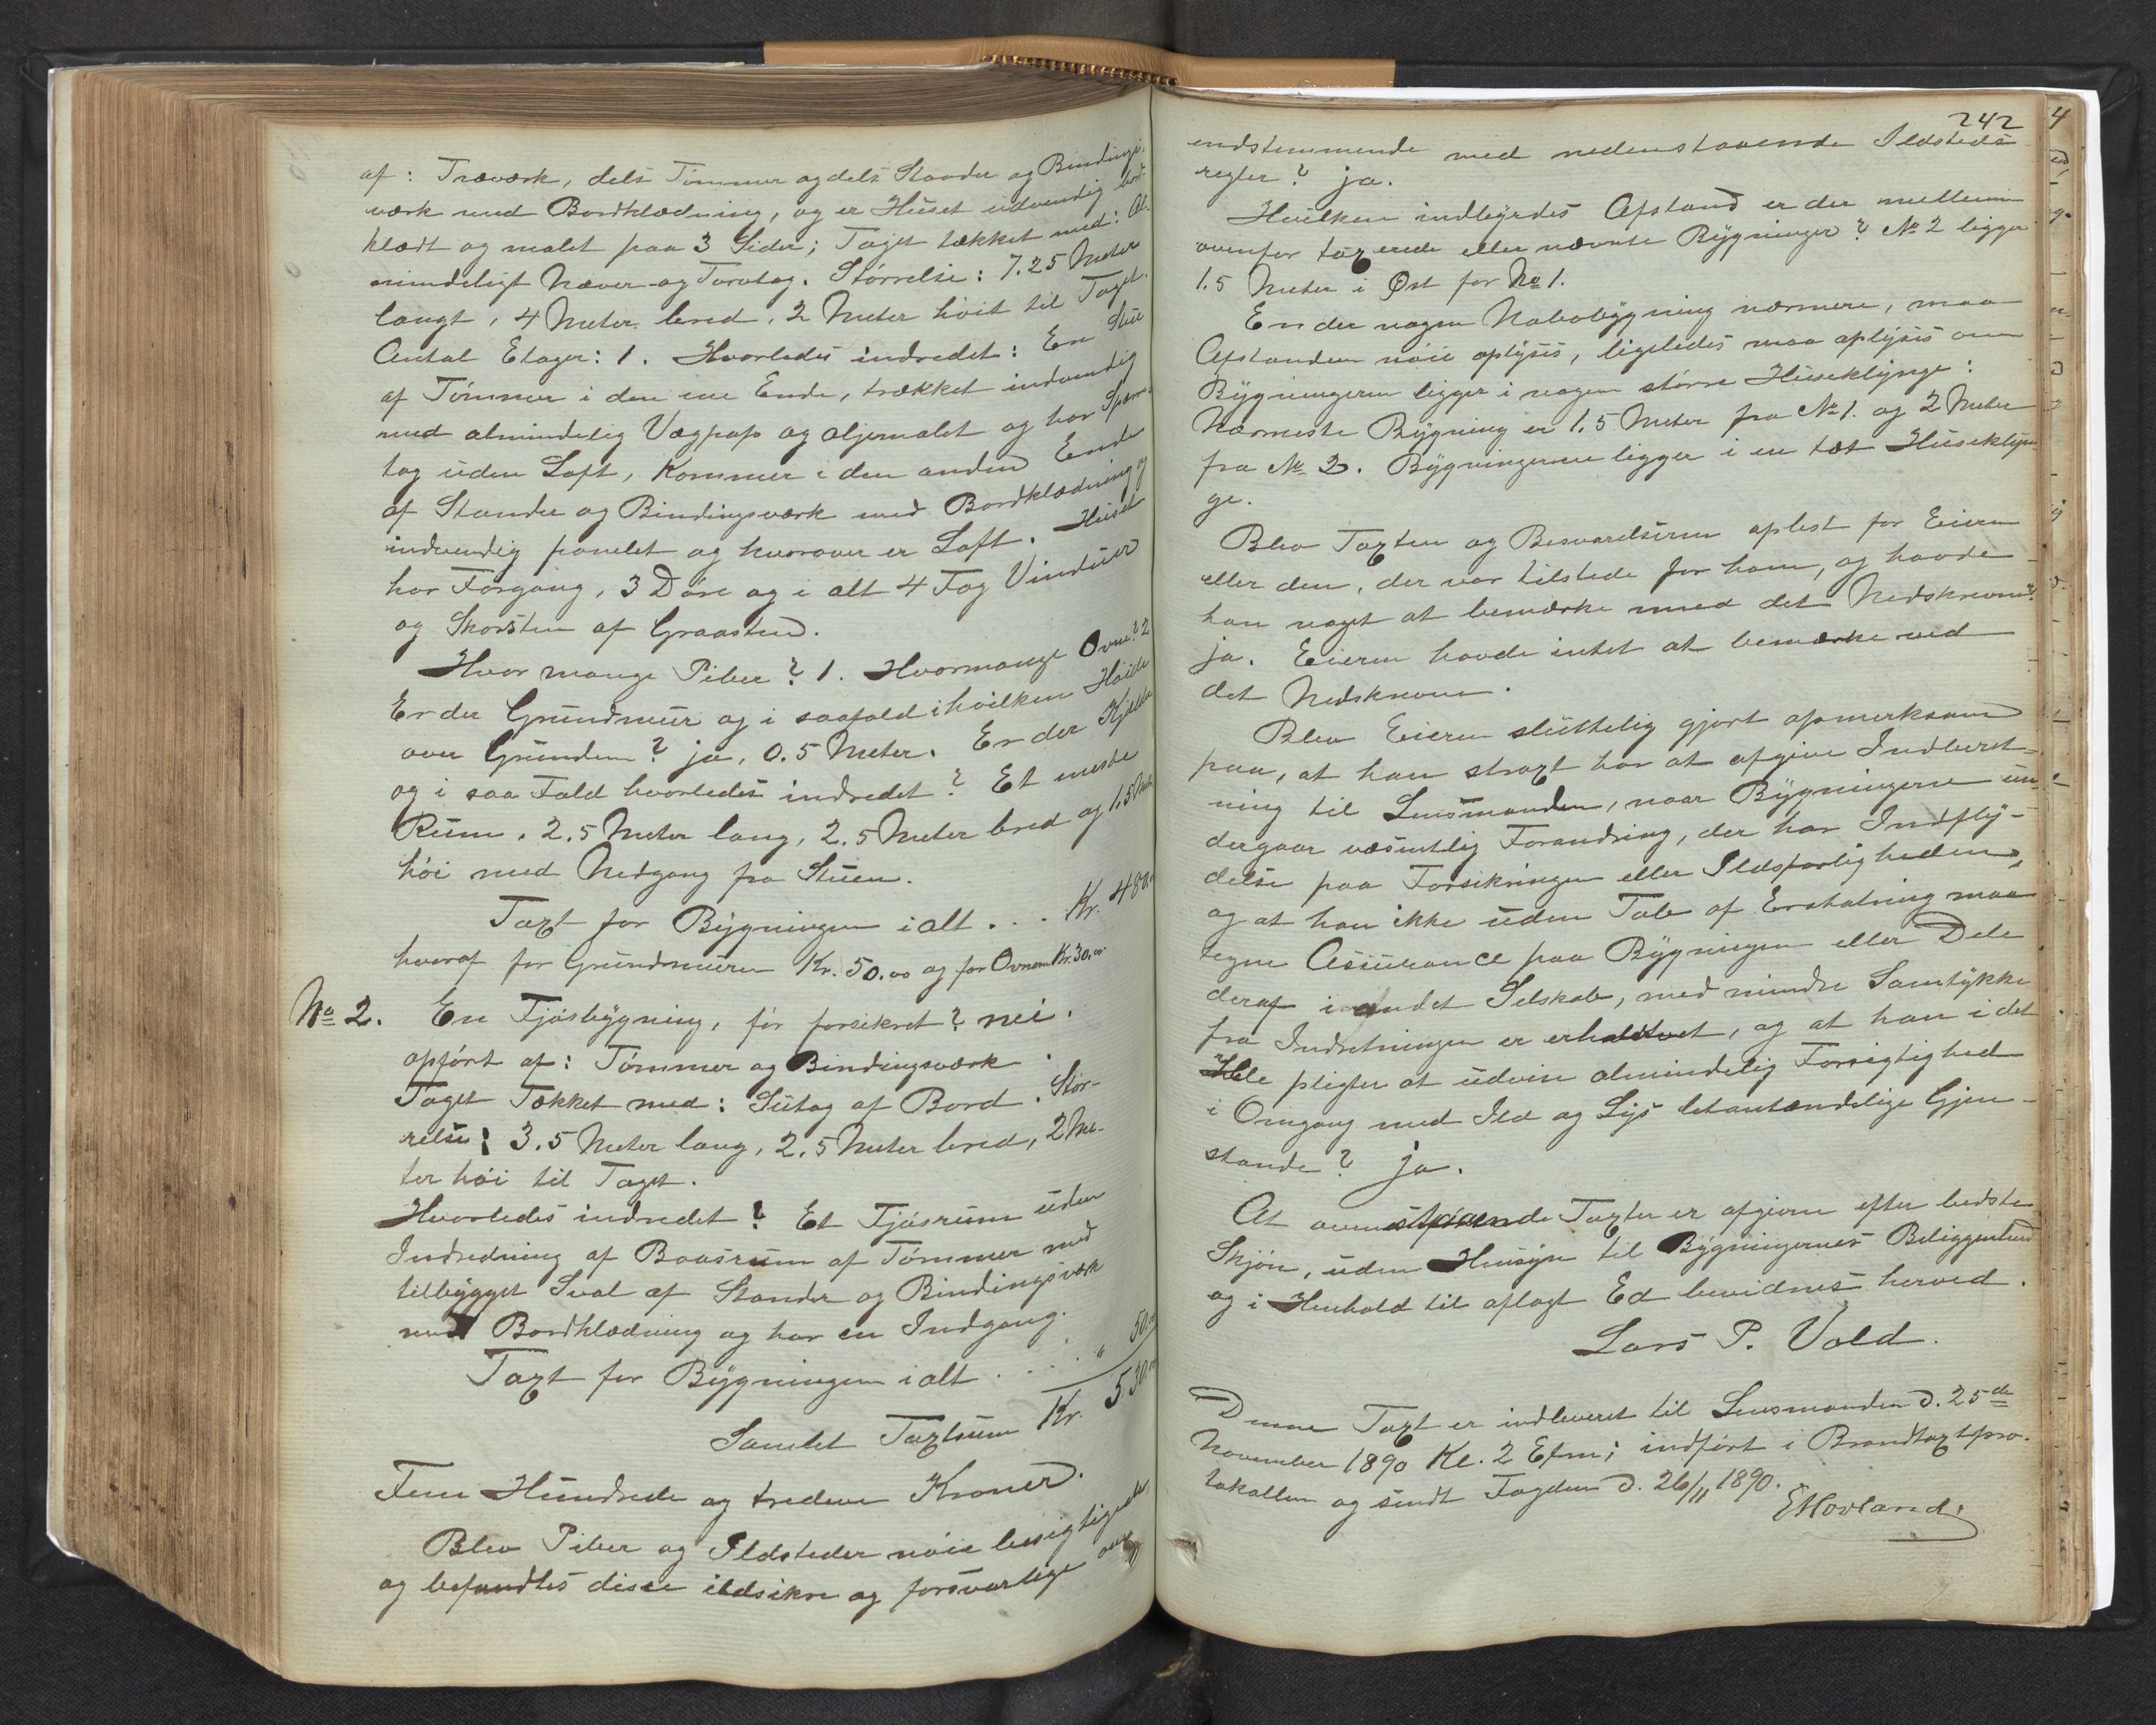 af: Træværk, dels Tømmer og dels Stander og Bindings-
værk med Bordklædning, og er Huset udvendig bord-
klædt og malet paa 3 Sider; Taget tækket med: Al-
mindeligt Næver- og Torvtag. Størrelse: 7.25 Meter
langt, 4 Meter bred, 2 Meter høit til Taget.
Antal Etager: 1. Hvorledes indredet: En Stue
af Tømmer i den ene Ende, trækket indvendig
med almindelig Vægpap og oljemalet og har Spærre-
tag uden Loft, Kammer i den anden Ende
af Stander og Bindingsværk med Bordklædning og
indvendig panelet og hvorover er Loft. Huset
har Forgang, 3 Døre og i alt 4 Fag Vinduer
og Skorsten af Graasten.
Hvor mange Piber? 1. Hvormange Ovne? 2
Er der Grundmur og i saafald i hvilken Høide
over Grunden? ja, 0.5 Meter. Er der Kjelder
og i saa Fald hvorledes indredet? Et meste
Rum. 2.5 Meter lang, 2.5 Meter bred og 1.5 Meter
høi med Nedgang fra Stuen.
Taxt for Bygningen ialt . . . Kr. 480.
hvoraf for Grundmuren Kr. 50.00 og for Ovnene Kr. 30.00
No 2. En Fjøsbygning, før forsikret? nei.
opført af: Tømmer og Bindingsværk.
Taget Tækket med: Sutag af Bord. Stør-
relse: 3.5 Meter lang, 2.5 Meter bred, 2 Me-
ter høi til Taget.
Hvorledes indredet? Et Fjøsrum uden
Indredning af Baasrum af Tømmer med
tilbygget Sval af Stander og Bindingsværk
med Bordklædning og har en Indgang.
Taxt for Bygningen ialt . . . " 50.
Samlet Taxtsum Kr. 530.
Fem Hundrede og tredeve Kroner.
Blev Piber og Ildsteder nøie besigtigede,
og befandtes disse ildsikre og forsvarlige over
242
endstemmende med nedenstaaende Ildsteds
regler? ja.
Hvilken indbyrdes Afstand er der mellem
ovenfor taxerede eller nævnte Bygninger? No 2 ligger
1.5 Meter i Øst for No 1.
Er der nogen Nabobygning nærmere, maa
Afstanden nøie oplyses, ligeledes maa oplyses om
Bygningerne ligger i nogen større Huseklynge:
Nærmeste Bygning er 1.5 Meter fra No 1. og 2 Meter
fra No 2. Bygningerne ligger i en tæt Huseklyn-
ge.
Blev Taxten og Besvarelserne oplest for Eieren
eller den, der var tilstede for ham, og havde
han noget at bemærke mod det Nedskrevne?
ja. Eieren havde intet at bemærke ved
det Nedskrevne.
Blev Eieren sluttelig gjort opmerksom
paa, at han straxt har at afgive Indberet-
ning til Lensmanden, naar Bygningerne un-
dergaar væsentlig Forandring, der har Indfly-
delse paa Forsikringen eller Ildsfarligheden,
og at han ikke uden Tab af Erstatning maa
tegne Assurance paa Bygningen eller Dele
deraf i andet Selskab, med mindre Samtykke
fra Indretningen er erholdtvet, og at han i det
Hele pligter at udvise almindelig Forsigtighed
i Omgang med Ild og Lys letantændelige Gjen-
stande? ja.
At ovenstaaende Taxter er afgivne efter bedste
Skjøn, uden Hensyn til Bygningernes Beliggenhed
og i Henhold til aflagt Ed bevidnes herved.
Lars P. Vold.
Denne Taxt er indleveret til Lensmanden d. 25de
November 1890 Kl. 2 Efm; indført i Brandtaxtpro-
tokollen og sendt Fogden d. 26/11 1890.
E Hovland.